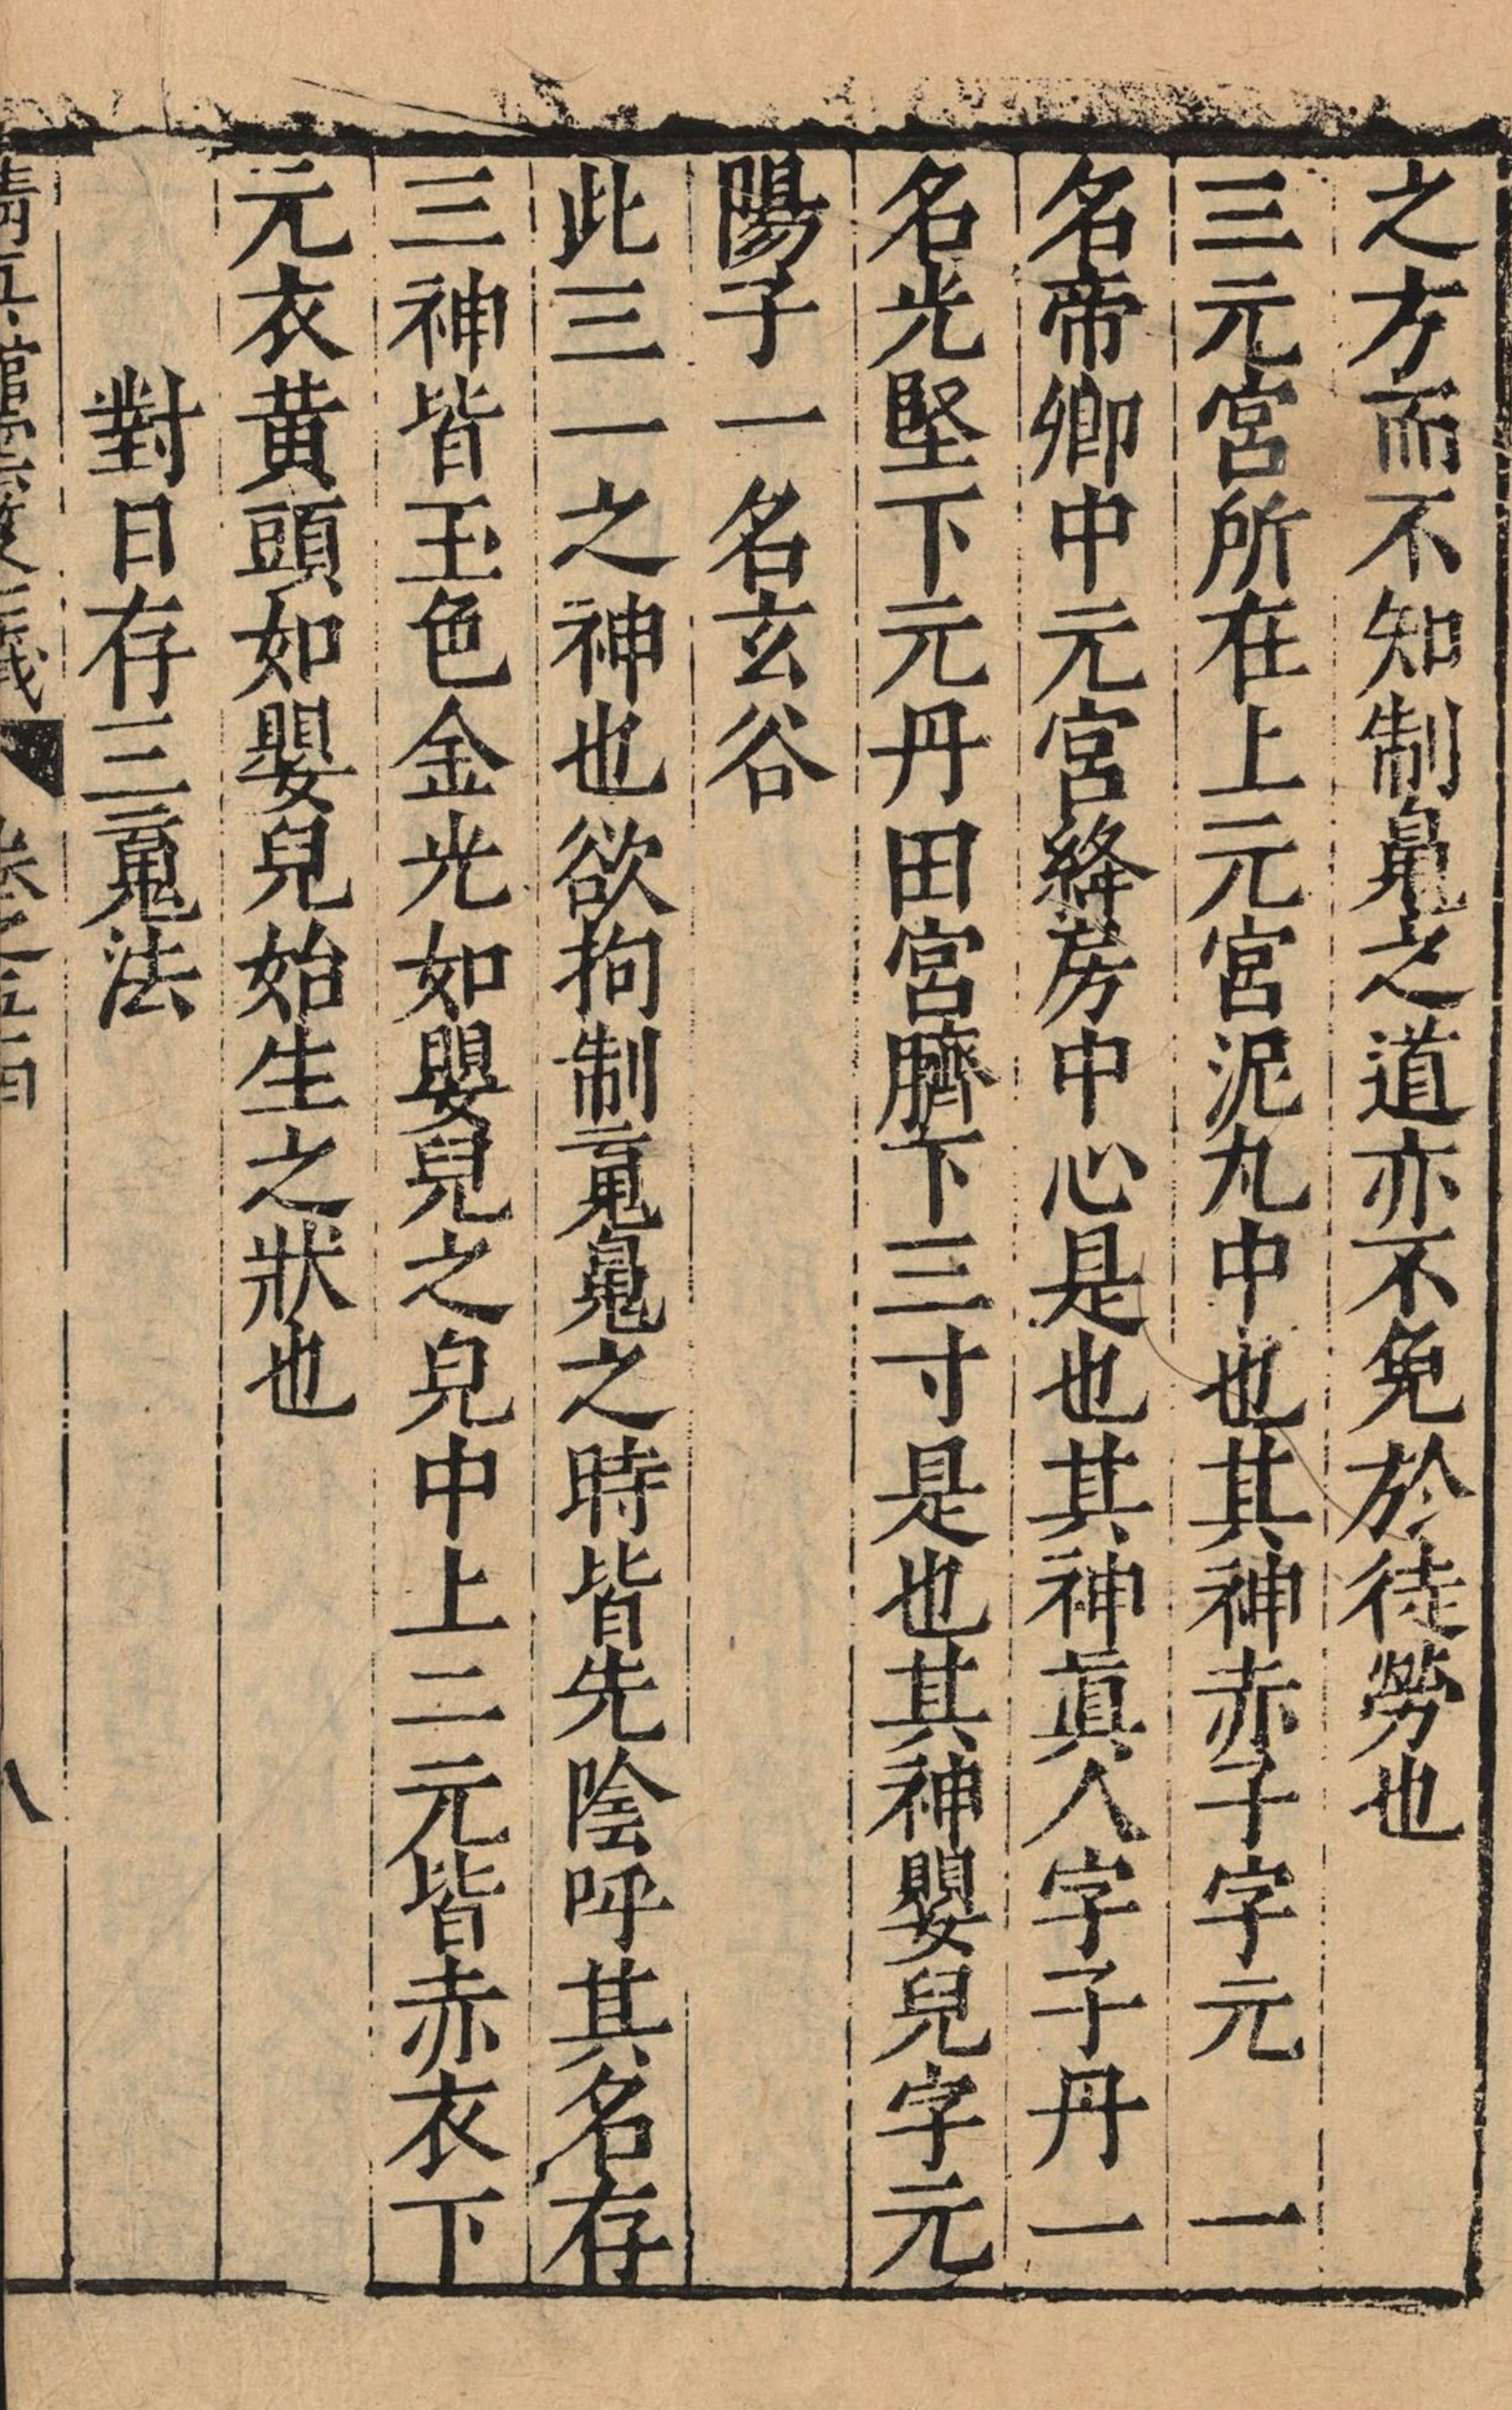 之方而不知制魄之道亦不免於徒勞也
三元宮所在上元宮泥丸中也其神赤子字元 一
名帝卿中元宮絳房中心是也其神眞人字子丹一
名光堅下元丹田宮臍下三寸是也其神嬰兒字元
陽子一名玄谷
此三一之神也欲拘制䰟魄之時皆先陰呼其名存
三神皆玉色金光如嬰兒之皃中上二元皆赤衣下
元衣黃頭如嬰兒始生之狀也
對日存三䰟法
清眞館雲笈七籤 卷之五 八